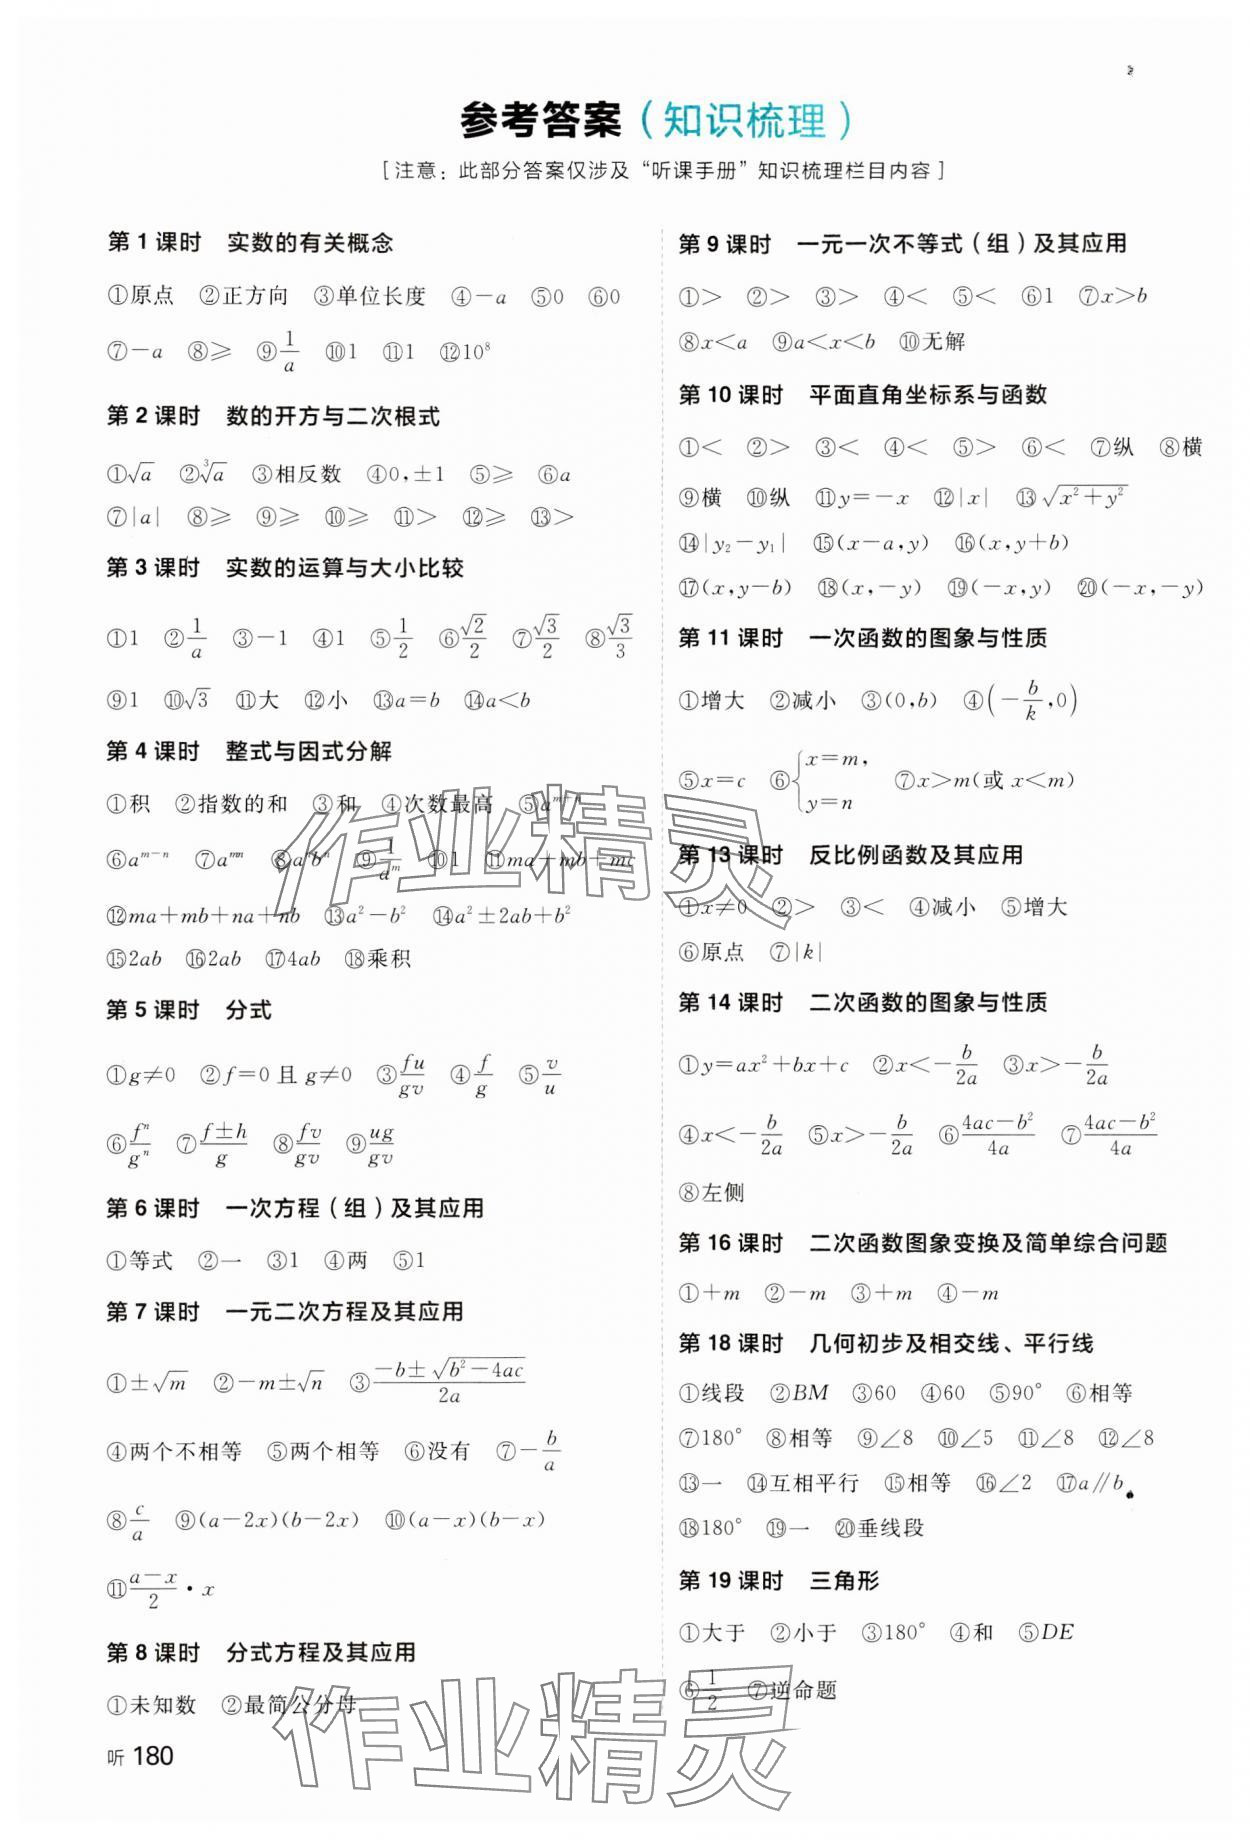 参考答案（知识梳理）
[注意：此部分答案仅涉及“听课手册”知识梳理栏目内容]
第1课时 实数的有关概念
①原点 ②正方向 ③单位长度 ④－a ⑤0 ⑥0
⑦－a ⑧≥ ⑨1/a ⑩1 ⑪1 ⑫10⁸
第2课时 数的开方与二次根式
①√a ②∛a ③相反数 ④0，±1 ⑤≥ ⑥a
⑦|a| ⑧≥ ⑨≥ ⑩≥ ⑪＞ ⑫≥ ⑬＞
第3课时 实数的运算与大小比较
①1 ②1/a ③－1 ④1 ⑤1/2 ⑥√2/2 ⑦√3/2 ⑧√3/3
⑨1 ⑩√3 ⑪大 ⑫小 ⑬a＝b ⑭a＜b
第4课时 整式与因式分解
①积 ②指数的和 ③和 ④次数最高 ⑤aᵐ⁺ⁿ
⑥aᵐ⁻ⁿ ⑦aᵐⁿ ⑧aⁿbⁿ ⑨1/aᵐ ⑩1 ⑪ma＋mb＋mc
⑫ma＋mb＋na＋nb ⑬a²－b² ⑭a²±2ab＋b²
⑮2ab ⑯2ab ⑰4ab ⑱乘积
第5课时 分式
①g≠0 ②f＝0且g≠0 ③fu/gv ④f/g ⑤v/u
⑥fⁿ/gⁿ ⑦(f±h)/g ⑧fv/gv ⑨ug/gv
第6课时 一次方程（组）及其应用
①等式 ②一 ③1 ④两 ⑤1
第7课时 一元二次方程及其应用
①±√m ②－m±√n ③(－b±√(b²－4ac))/2a
④两个不相等 ⑤两个相等 ⑥没有 ⑦－b/a
⑧c/a ⑨(a－2x)(b－2x) ⑩(a－x)(b－x)
⑪(a－x)/2·x
第8课时 分式方程及其应用
①未知数 ②最简公分母
听 180
第9课时 一元一次不等式（组）及其应用
①＞ ②＞ ③＞ ④＜ ⑤＜ ⑥1 ⑦x＞b
⑧x＜a ⑨a＜x＜b ⑩无解
第10课时 平面直角坐标系与函数
①＜ ②＞ ③＜ ④＜ ⑤＞ ⑥＜ ⑦纵 ⑧横
⑨横 ⑩纵 ⑪y＝－x ⑫|x| ⑬√(x²＋y²)
⑭|y₂－y₁| ⑮(x－a，y) ⑯(x，y＋b)
⑰(x，y－b) ⑱(x，－y) ⑲(－x，y) ⑳(－x，－y)
第11课时 一次函数的图象与性质
①增大 ②减小 ③(0，b) ④(－b/k，0)
⑤x＝c ⑥{x＝m，y＝n ⑦x＞m(或x＜m)
第13课时 反比例函数及其应用
①x≠0 ②＞ ③＜ ④减小 ⑤增大
⑥原点 ⑦|k|
第14课时 二次函数的图象与性质
①y＝ax²＋bx＋c ②x＜－b/2a ③x＞－b/2a
④x＜－b/2a ⑤x＞－b/2a ⑥(4ac－b²)/4a ⑦(4ac－b²)/4a
⑧左侧
第16课时 二次函数图象变换及简单综合问题
①＋m ②－m ③＋m ④－m
第18课时 几何初步及相交线、平行线
①线段 ②BM ③60 ④60 ⑤90° ⑥相等
⑦180° ⑧相等 ⑨∠8 ⑩∠5 ⑪∠8 ⑫∠8
⑬一 ⑭互相平行 ⑮相等 ⑯∠2 ⑰a∥b
⑱180° ⑲一 ⑳垂线段
第19课时 三角形
①大于 ②小于 ③180° ④和 ⑤DE
⑥1/2 ⑦逆命题
作业精灵
作业精灵